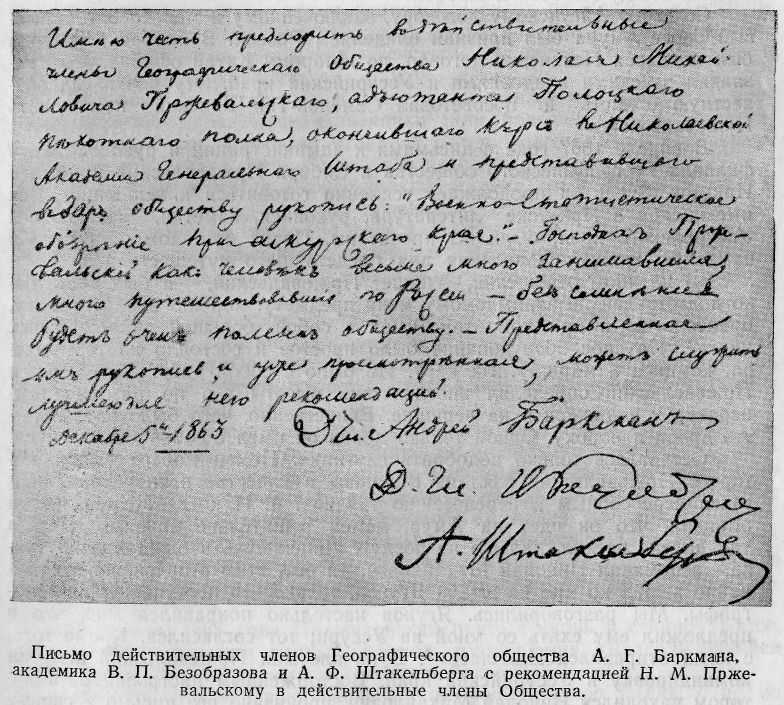 Имѣю честь предложить въ дѣйствительные
члены Географическаго Общества Николая Михай-
ловича Пржевальскаго, адъютанта Полоцкаго
пѣхотнаго полка, окончившаго курсъ въ Николаевской
Академіи Генеральнаго Штаба и представившаго
въ даръ обществу рукопись: "Военно-Статистическое
обозрѣніе Приамурскаго края". — Господинъ Прже-
вальскій какъ человѣкъ весьма много занимавшійся,
много путешествовавшій по Россіи — безъ сомнѣнія
будетъ очень полезенъ обществу. — Представленная
имъ рукопись и уже просмотрѣнная, можетъ служить
лучшею для него рекомендацией
Декабря 5го 1863 Д. Чл. Андрей Баркманъ
Д. Чл.
А. Штакельберг
Письмо действительных членов Географического общества А. Г. Баркмана,
академика В. П. Безобразова и А. Ф. Штакельберга с рекомендацией Н. М. Прже-
вальскому в действительные члены Общества.